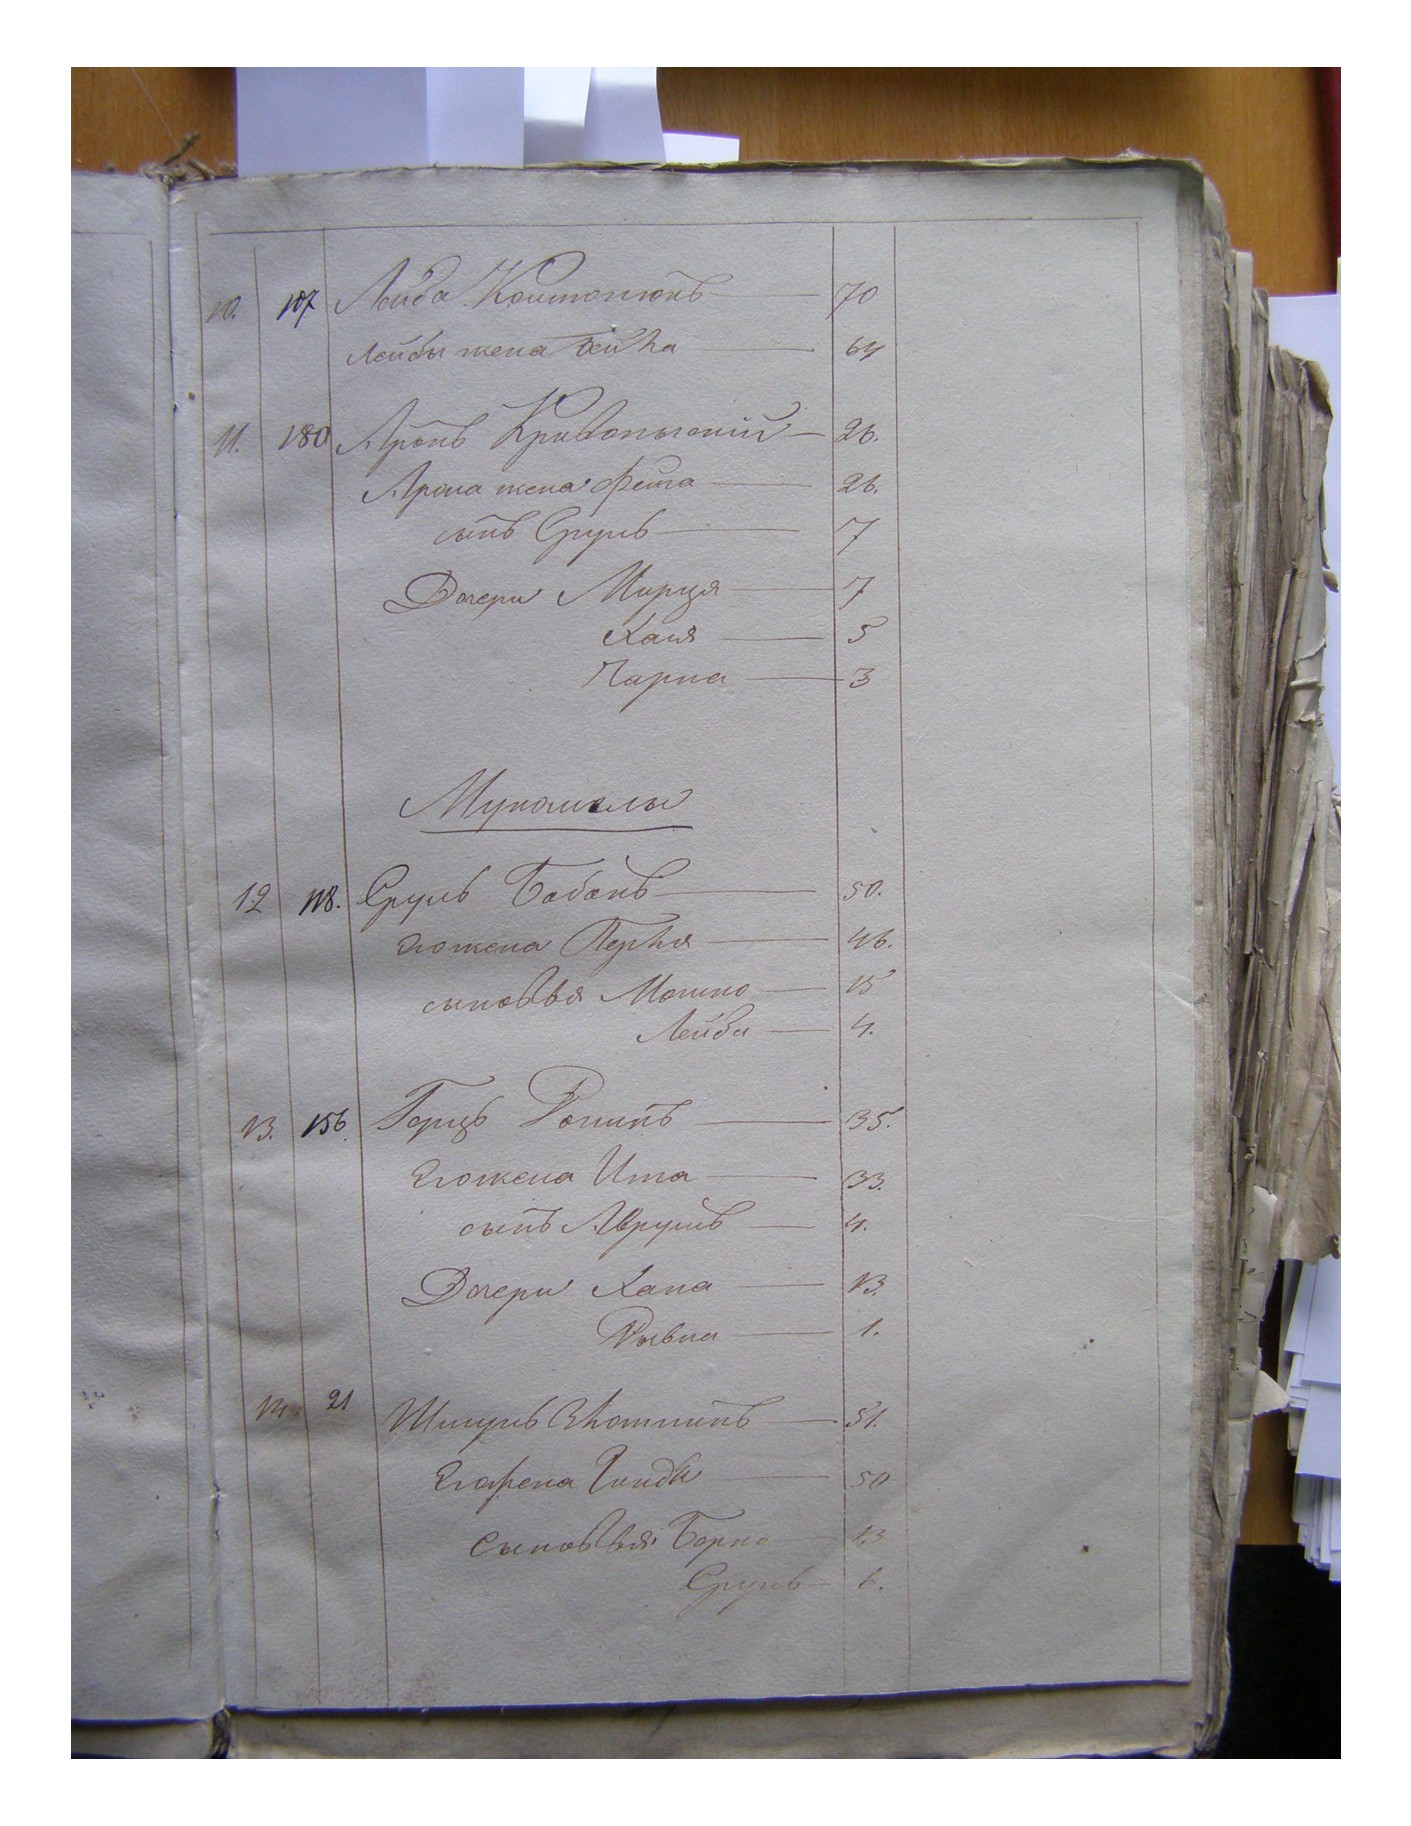 10. 107 Лейба 70
Лейбы жена Бейла 64
11. 180 Аронъ 26.
Арона жена Фейга 26.
сынъ Сруль 7
Дочери Мирця 7
Хая 5
Чарна 3
Мукомелы
12 118. Сруль Бабанъ 50.
его жена Перля 46.
сыновья Мошко 15
Лейба 4.
13. 156. Герцъ 35.
его жена Ита 33.
сынъ Аврумъ 4.
Дочери Хана 13.
Рывка 1.
14 21 Шмуль 51.
его жена 50
сыновья Берко 13
Сруль 6.